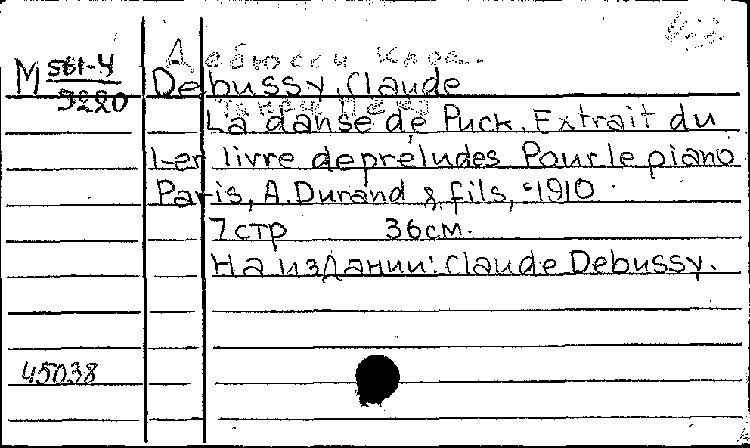 Дебюсси Клод.
M 561-4
9220
Debussy, Claude
La danse de Puck. Extrait du
1-er livre de préludes Pour le piano
Paris, A. Durand & fils, c1910.
7 стр 36 см.
На издании: Claude Debussy.
45038